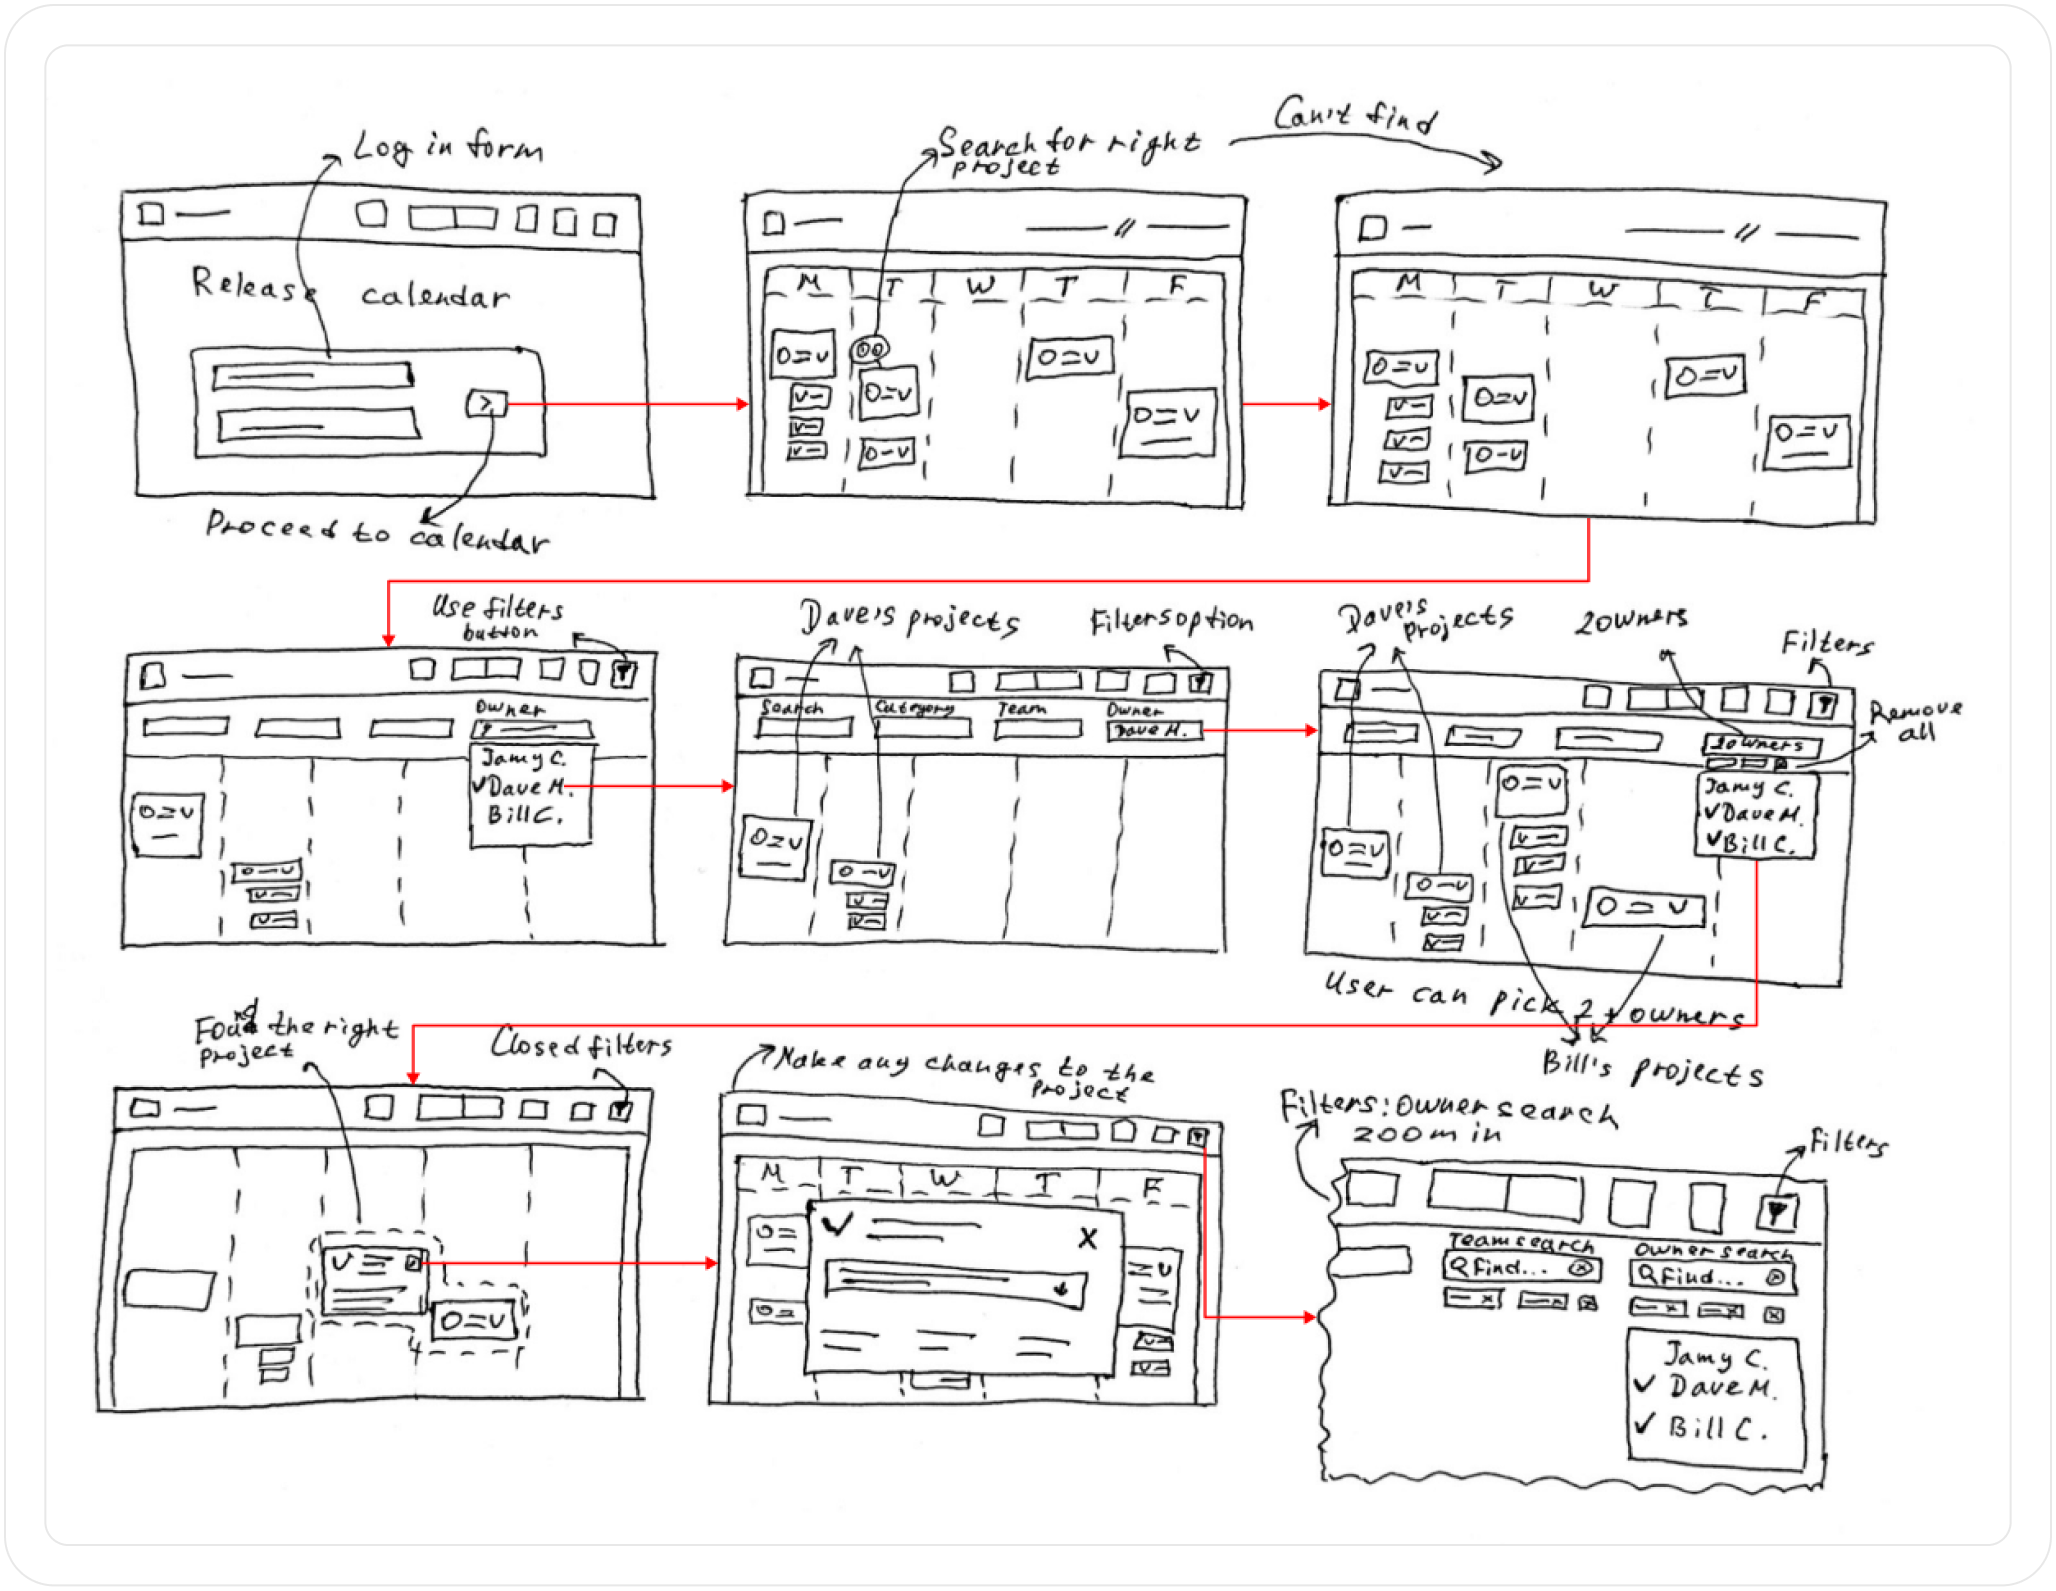 Log in form
Release calendar
Proceed to calendar
Search for right
project
Can't find
M T W T F
M T W T F
Use filters
button
Owner
Jamy C.
Dave M.
Bill C.
Dave's projects
Filters option
Search Category Team Owner
Dave M.
Dave's
projects
2 owners
Filters
Remove
all
2 owners
Jamy C.
Dave M.
Bill C.
User can pick 2+ owners
Bill's projects
Found the right
project
Closed filters
Make any changes to the
project
M T W T F
X
Filters: Owner search
200 min
Filters
Team search Owner search
Find... Find...
Jamy C.
Dave M.
Bill C.